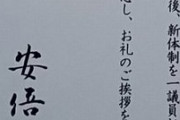 後、新体制を一議員
し、お礼のご挨拶を
安倍